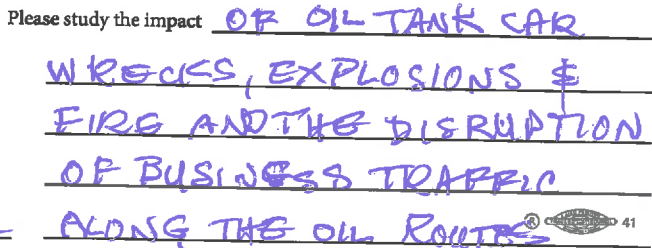 Please study the impact OF OIL TANK CAR
WRECKS, EXPLOSIONS &
FIRE AND THE DISRUPTION
OF BUSINESS TRAFFIC
ALONG THE OIL ROUTES ® 41